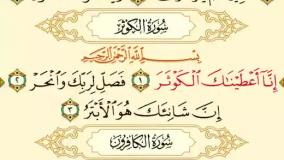 سُورَةُ الكَوْثَرِ
بِسْمِ اللَّهِ الرَّحْمَٰنِ الرَّحِيمِ
إِنَّا أَعْطَيْنَاكَ الْكَوْثَرَ ١ فَصَلِّ لِرَبِّكَ وَانْحَرْ ٢
إِنَّ شَانِئَكَ هُوَ الْأَبْتَرُ ٣
سُورَةُ الكَافِرُونَ